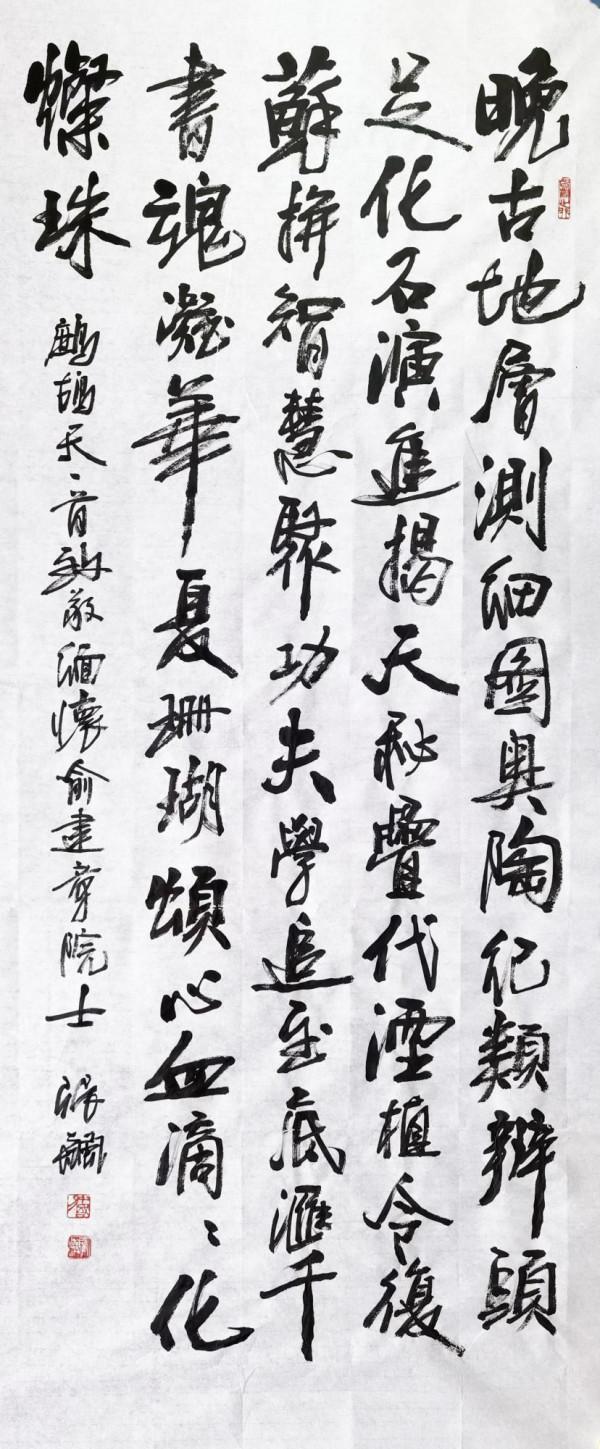 晚古地層測細圖奧陶紀類辨頭
足化石演進揭天秘疊代湮植令復
蘇拚智慧聚功夫學追至底滙千
書魂凝華夏珊瑚頌心血滴〻化
燦珠
鷓鴣天一首致敬緬懷俞建章院士 張